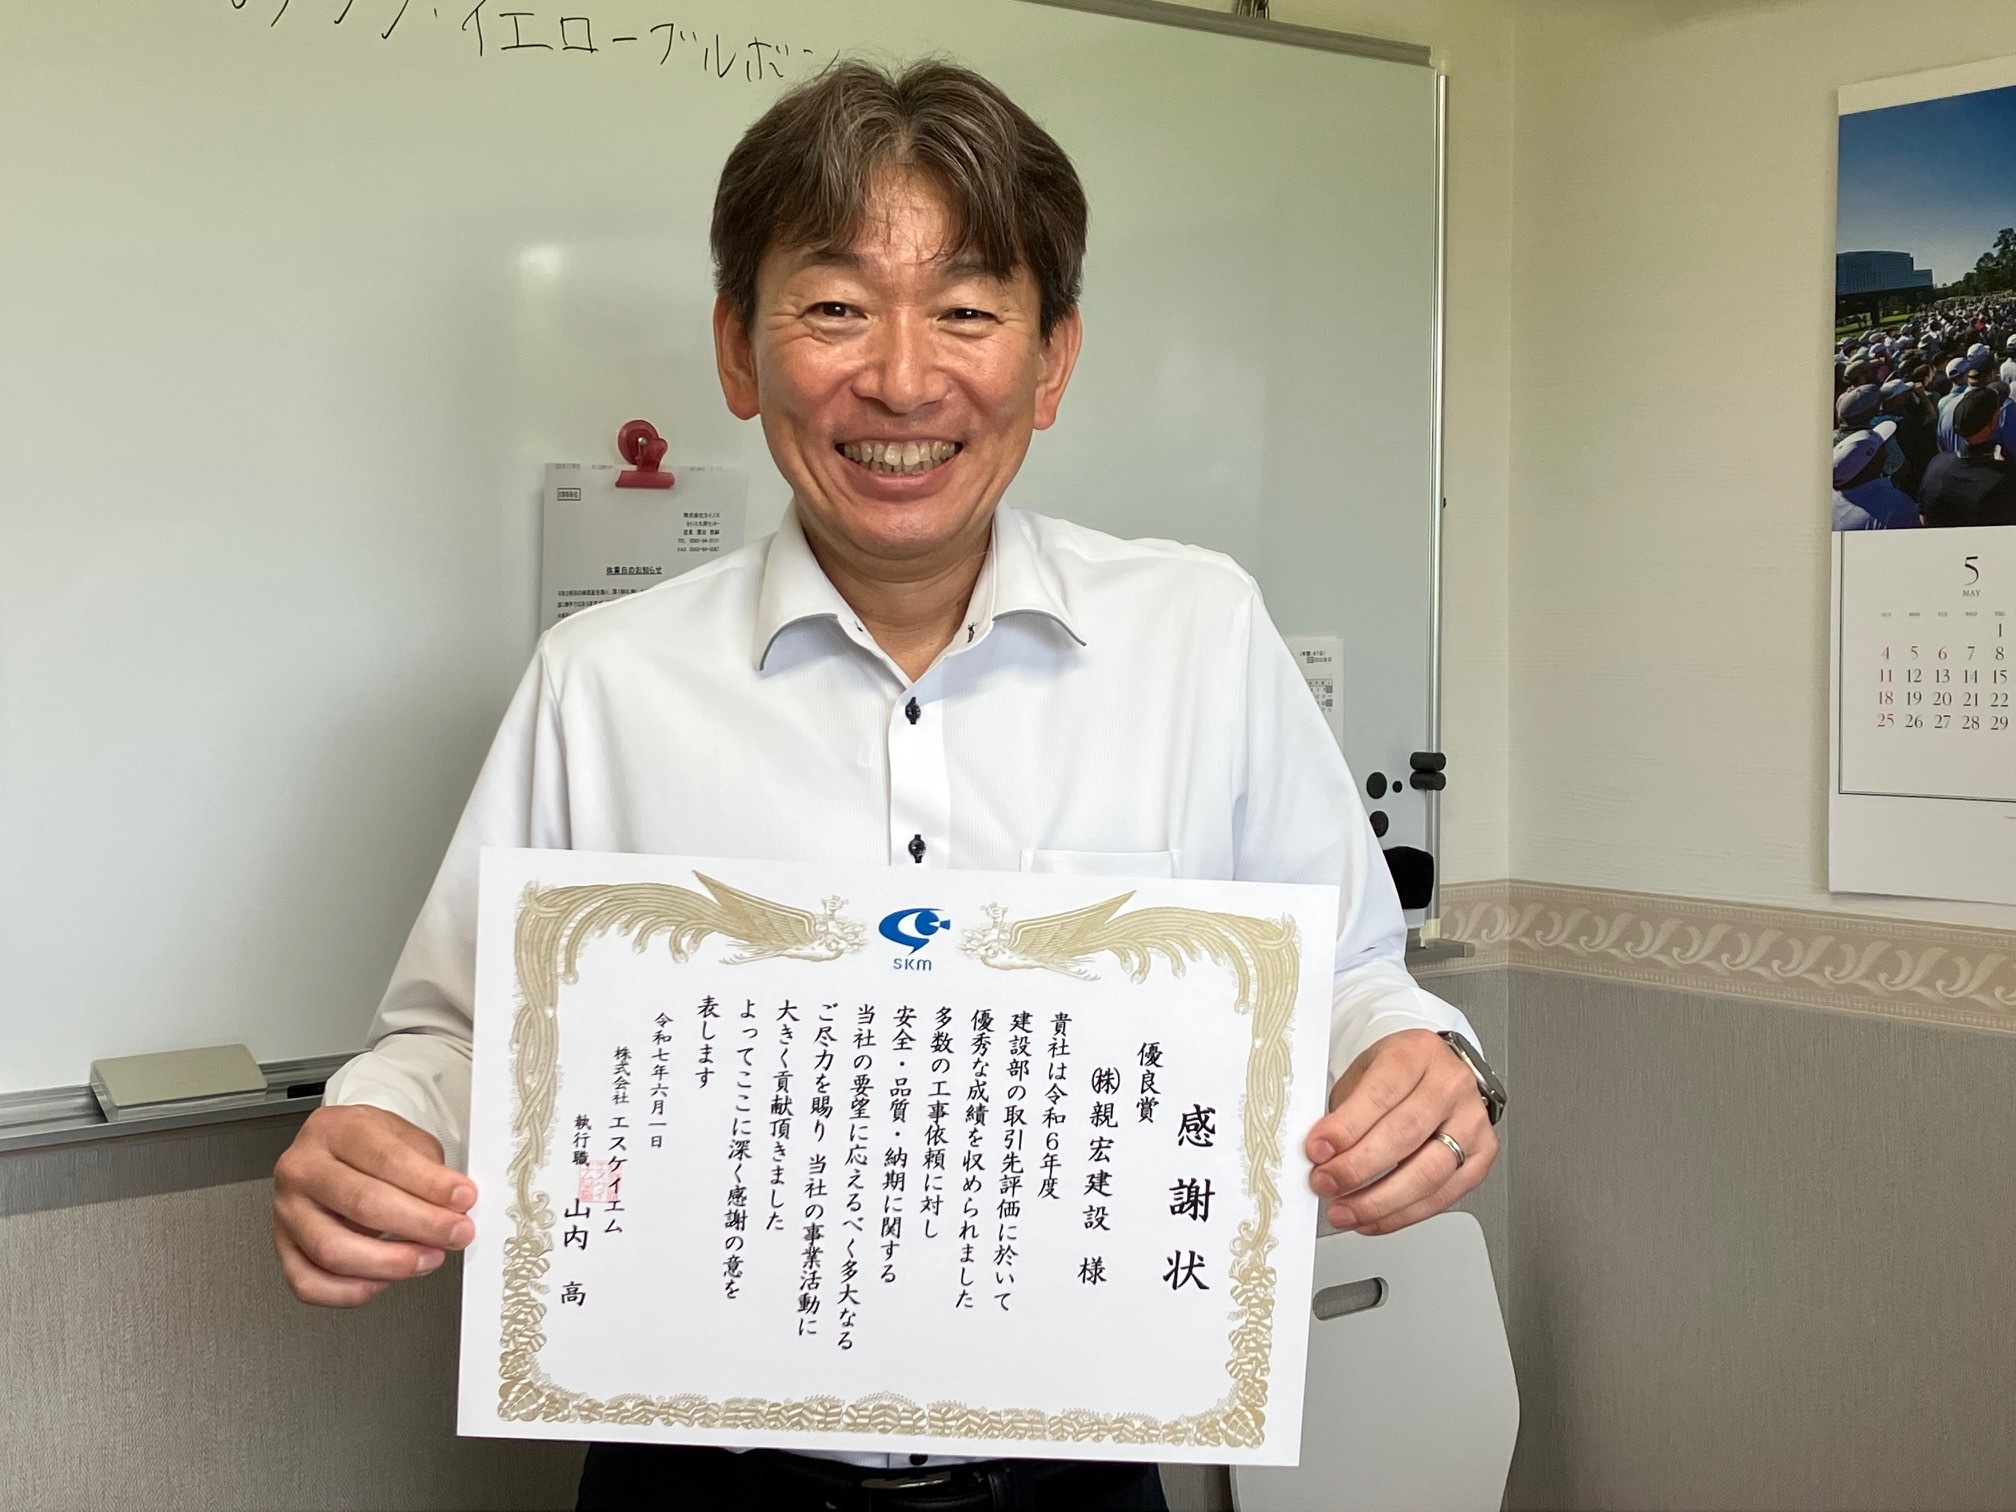 イエローブルボン
株式会社カイノス
休業日のお知らせ
5
MAY
SUN MON TUE WED THU
1
4 5 6 7 8
11 12 13 14 15
18 19 20 21 22
25 26 27 28 29
SKM
感謝状
優良賞
㈱親宏建設 様
貴社は令和6年度
建設部の取引先評価に於いて
優秀な成績を収められました
多数の工事依頼に対し
安全・品質・納期に関する
当社の要望に応えるべく多大なる
ご尽力を賜り 当社の事業活動に
大きく貢献頂きました
よってここに深く感謝の意を
表します
令和七年六月一日
株式会社 エスケイエム
執行職 山内 高